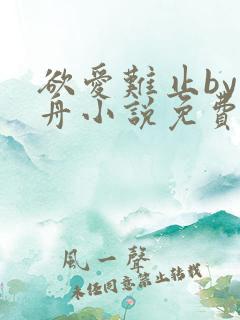 欲愛難止by
舟小說免費
風一聲
未經同意禁止轉載